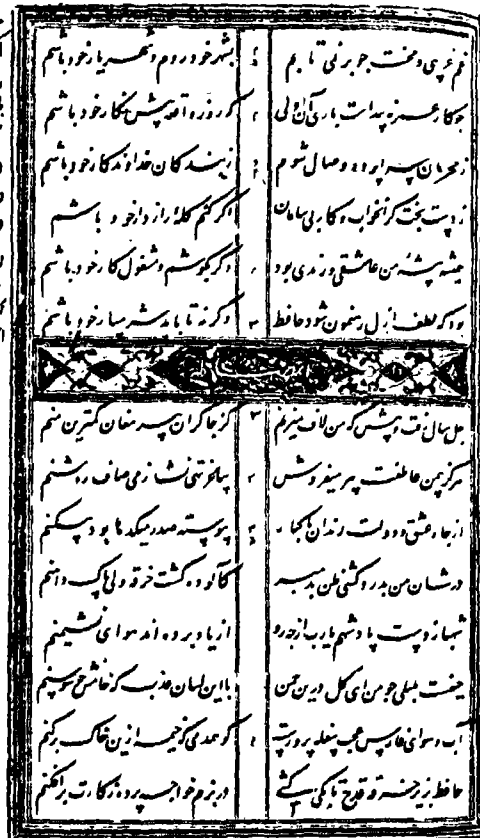 غم غریبی و محنت چو بر نمی تابم بشهر خود روم و شهریار خود باشم
چو کار عمر نه پیداست باری آن اولی که روز واقعه پیش نگار خود باشم
ز محرمان سراپرده وصال شوم ز بندگان خداوندگار خود باشم
ز دست بخت گرانخواب و کار بی سامان اگر کنم گله رازدار خود باشم
همیشه پیشه من عاشقی و رندی بود دگر بکوشم و مشغول کار خود باشم
بود که لطف ازل رهنمون شود حافظ وگرنه تا بابد شرمسار خود باشم
چل سال رفت و پیش که من لاف میزنم کز چاکران پیر مغان کمترین منم
هرگز بیمن عاطفت پیر میفروش ساغر تهی نشد ز می صاف روشنم
از جاه عشق و دولت رندان پاکباز پیوسته صدر میکدها بود مسکنم
در شان من بدردکشی ظن بد مبر کآلوده گشت خرقه ولی پاک دامنم
شهباز دست پادشهم یارب از چه رو از یاد برده اند هوای نشیمنم
حیفست بلبلی چو من ای گل درین چمن با این لسان عذب که خامش چو سوسنم
آب و هوای فارس عجب سفله پرورست کو همدمی که خیمه ازین خاک بر کنم
حافظ بزیر خرقه قدح تا بکی کشی در بزم خواجه پرده ز کارت برافکنم